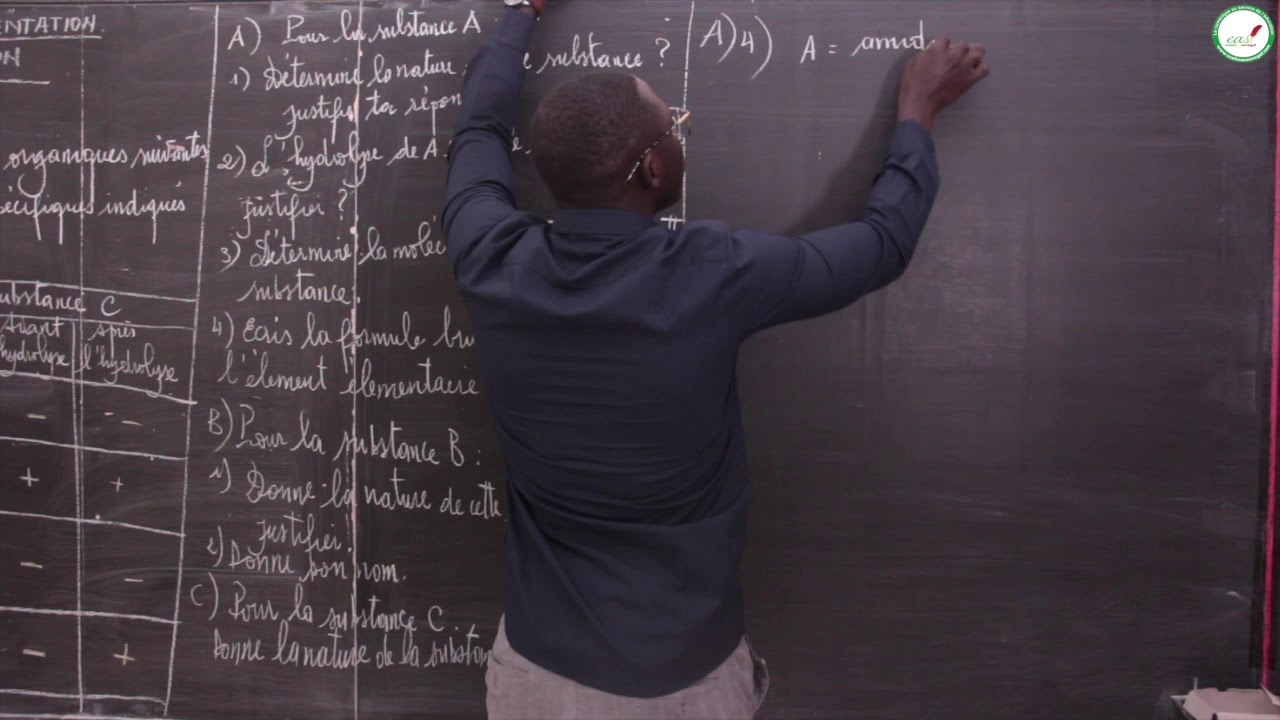 ENTATION.
ON
organiques suivantes
écifiques indiqués
ubstance C
Avant
hydrolyse
après
l'hydrolyse
- -
+ +
- -
- +
A) Pour la substance A :
1) Détermine la nature e substance ?
justifie ta répon
2) L'hydrolyse de A
Justifier ?
3) Détermine la moléc
substance.
4) Ecris la formule bru
l'élement élementaire
B) Pour la substance B :
1) Donne la nature de cette
justifier.
2) Donne son nom.
C) Pour la substance C.
Donne la nature de la substan
A) 4) A = amid
eas